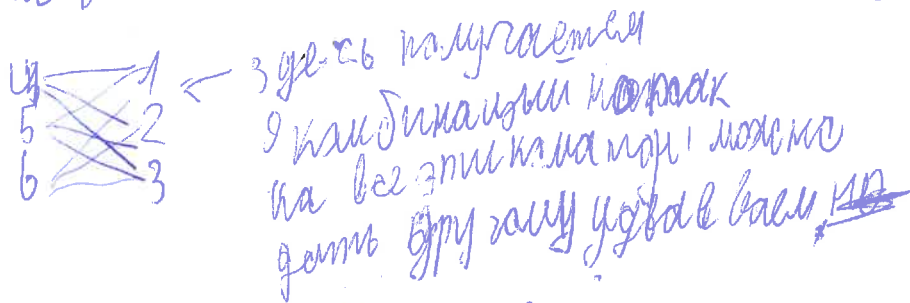 4 1 ← здесь получается
5 2 9 комбинаций но так
6 3 как все эти команды можно
дать другому удваиваем